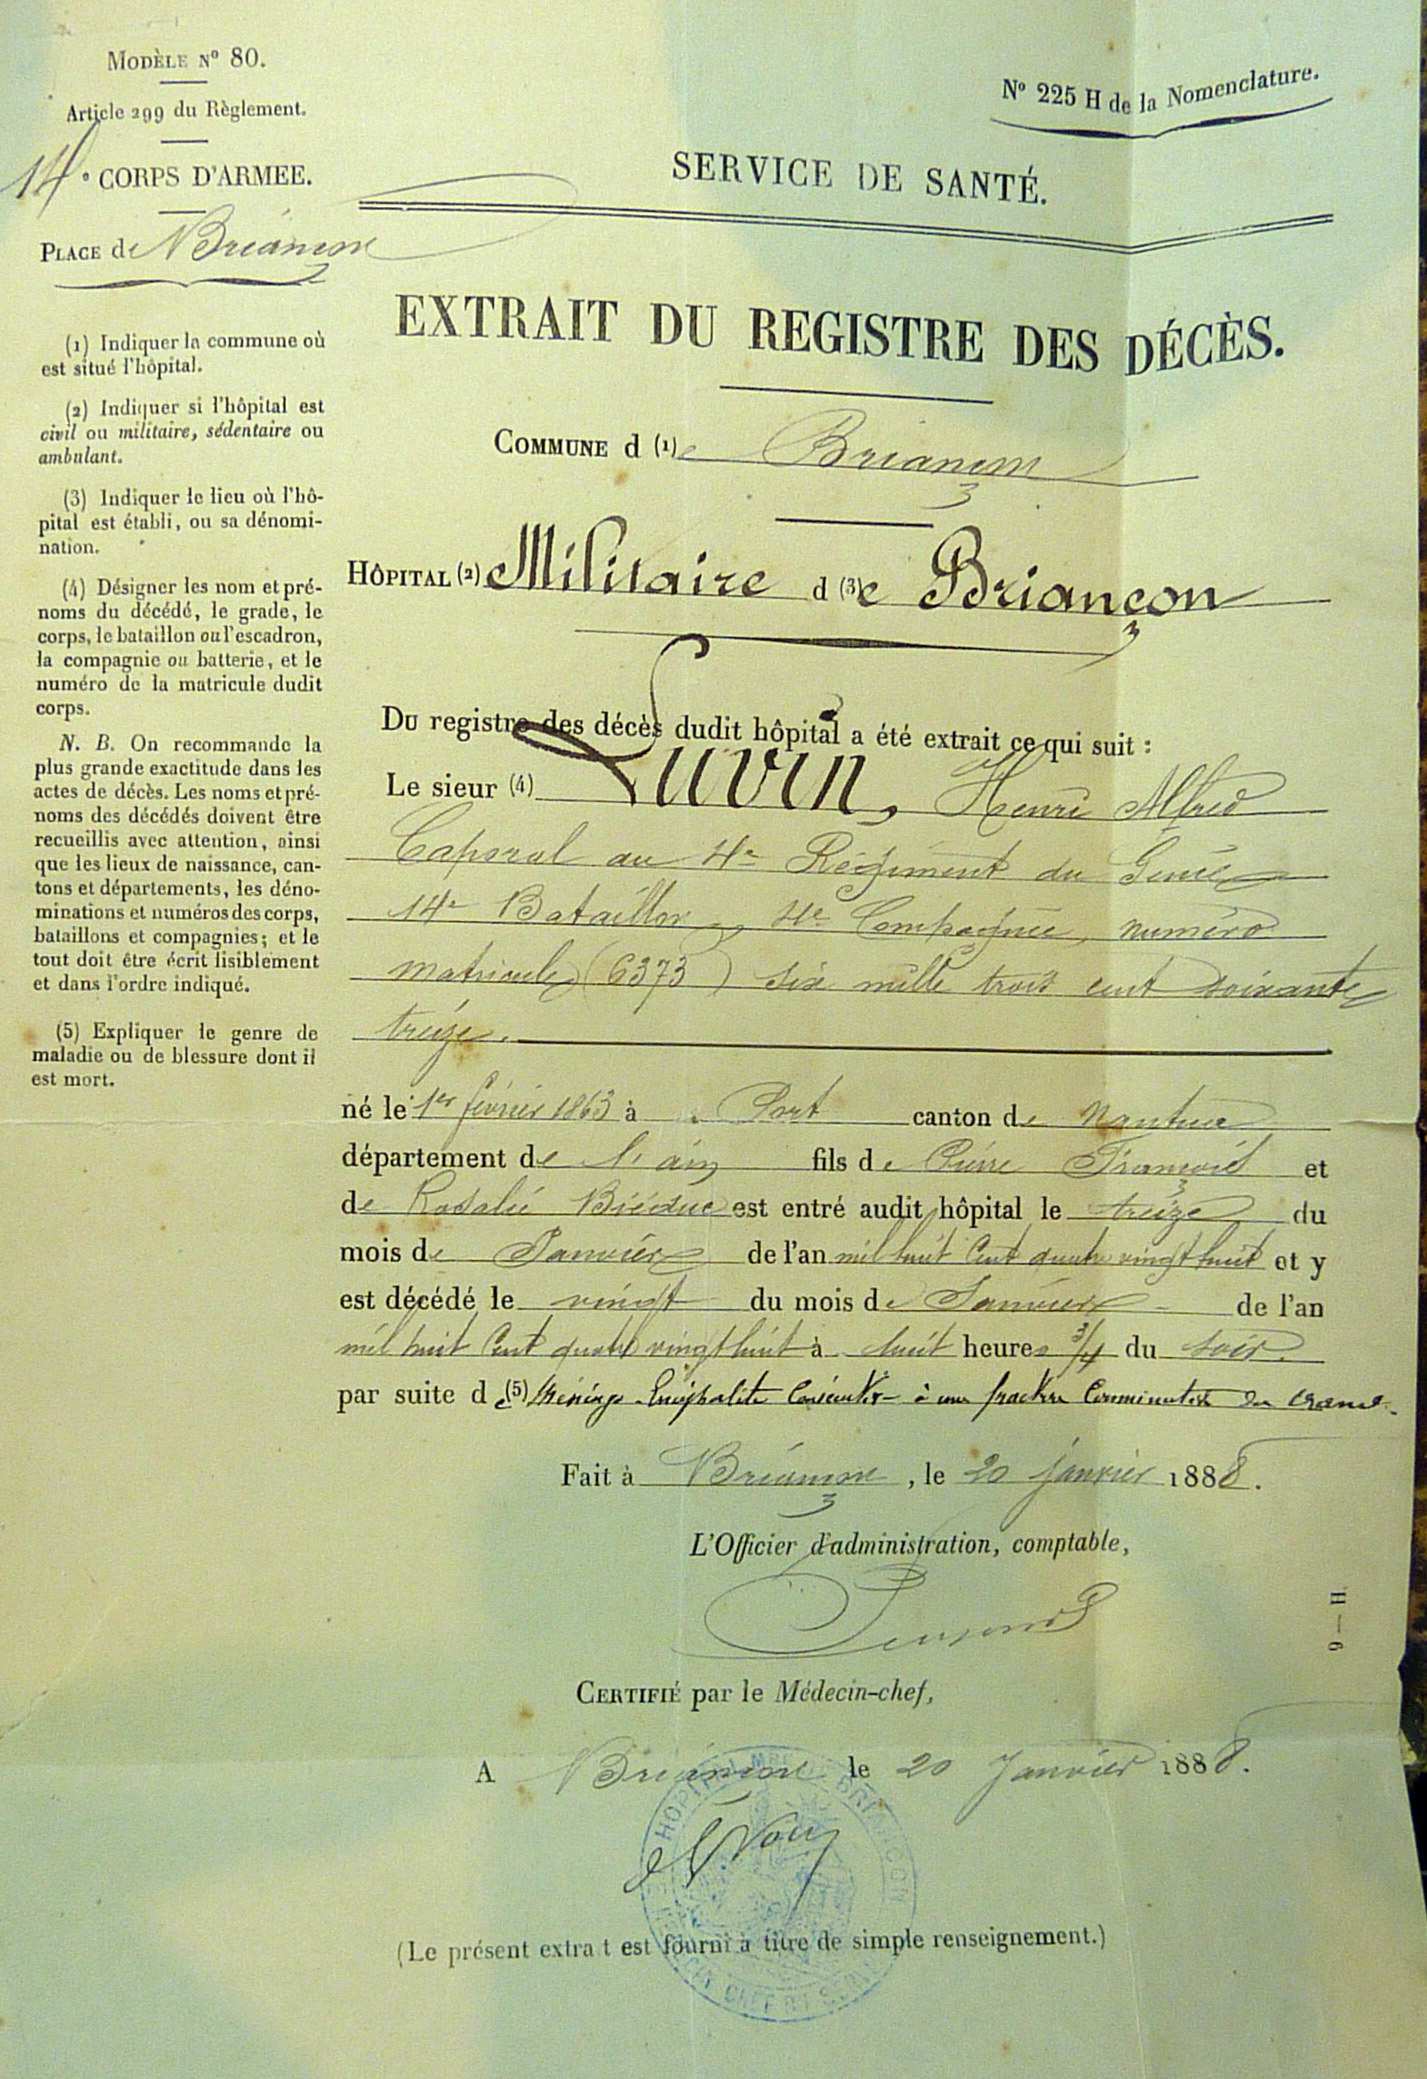 MODÈLE Nº 80.
Article 299 du Règlement.
14e CORPS D'ARMEE.
PLACE de Briançon
(1) Indiquer la commune où
est situé l'hôpital.
(2) Indiquer si l'hôpital est
civil ou militaire, sédentaire ou
ambulant.
(3) Indiquer le lieu où l'hô-
pital est établi, ou sa dénomi-
nation.
(4) Désigner les nom et pré-
noms du décédé, le grade, le
corps, le bataillon ou l'escadron,
la compagnie ou batterie, et le
numéro de la matricule dudit
corps.
N. B. On recommande la
plus grande exactitude dans les
actes de décès. Les noms et pré-
noms des décédés doivent être
recueillis avec attention, ainsi
que les lieux de naissance, can-
tons et départements, les déno-
minations et numéros des corps,
bataillons et compagnies; et le
tout doit être écrit lisiblement
et dans l'ordre indiqué.
(5) Expliquer le genre de
maladie ou de blessure dont il
est mort.
Nº 225 H de la Nomenclature.
SERVICE DE SANTÉ.
EXTRAIT DU REGISTRE DES DÉCÈS.
COMMUNE d (1) e Briançon
HÔPITAL (2) Militaire d (3) e Briançon
Du registre des décès dudit hôpital a été extrait ce qui suit :
Le sieur (4) Luvin, Henri Alfred
Caporal au 4e Régiment du Génie
14e Bataillon, 4e Compagnie, numéro
matricule (6373) six mille trois cent soixante
treize.
né le 1er février 1863 à Port canton de Nantua
département de l'ain fils de Pierre François et
de Rosalie est entré audit hôpital le treize du
mois de Janvier de l'an mil huit cent quatre vingt huit et y
est décédé le vingt du mois de Janvier de l'an
mil huit cent quatre vingt huit à huit heures 3/4 du soir.
par suite de (5) Méningo-Encéphalite consécutive à une fracture comminutive du crane.
Fait à Briançon, le 20 janvier 1888.
L'Officier d'administration, comptable,
CERTIFIÉ par le Médecin-chef,
A Briançon le 20 Janvier 1888.
HÔPITAL MRE DE BRIANÇON
(Le présent extra t est fourni à titre de simple renseignement.)
9 — H.